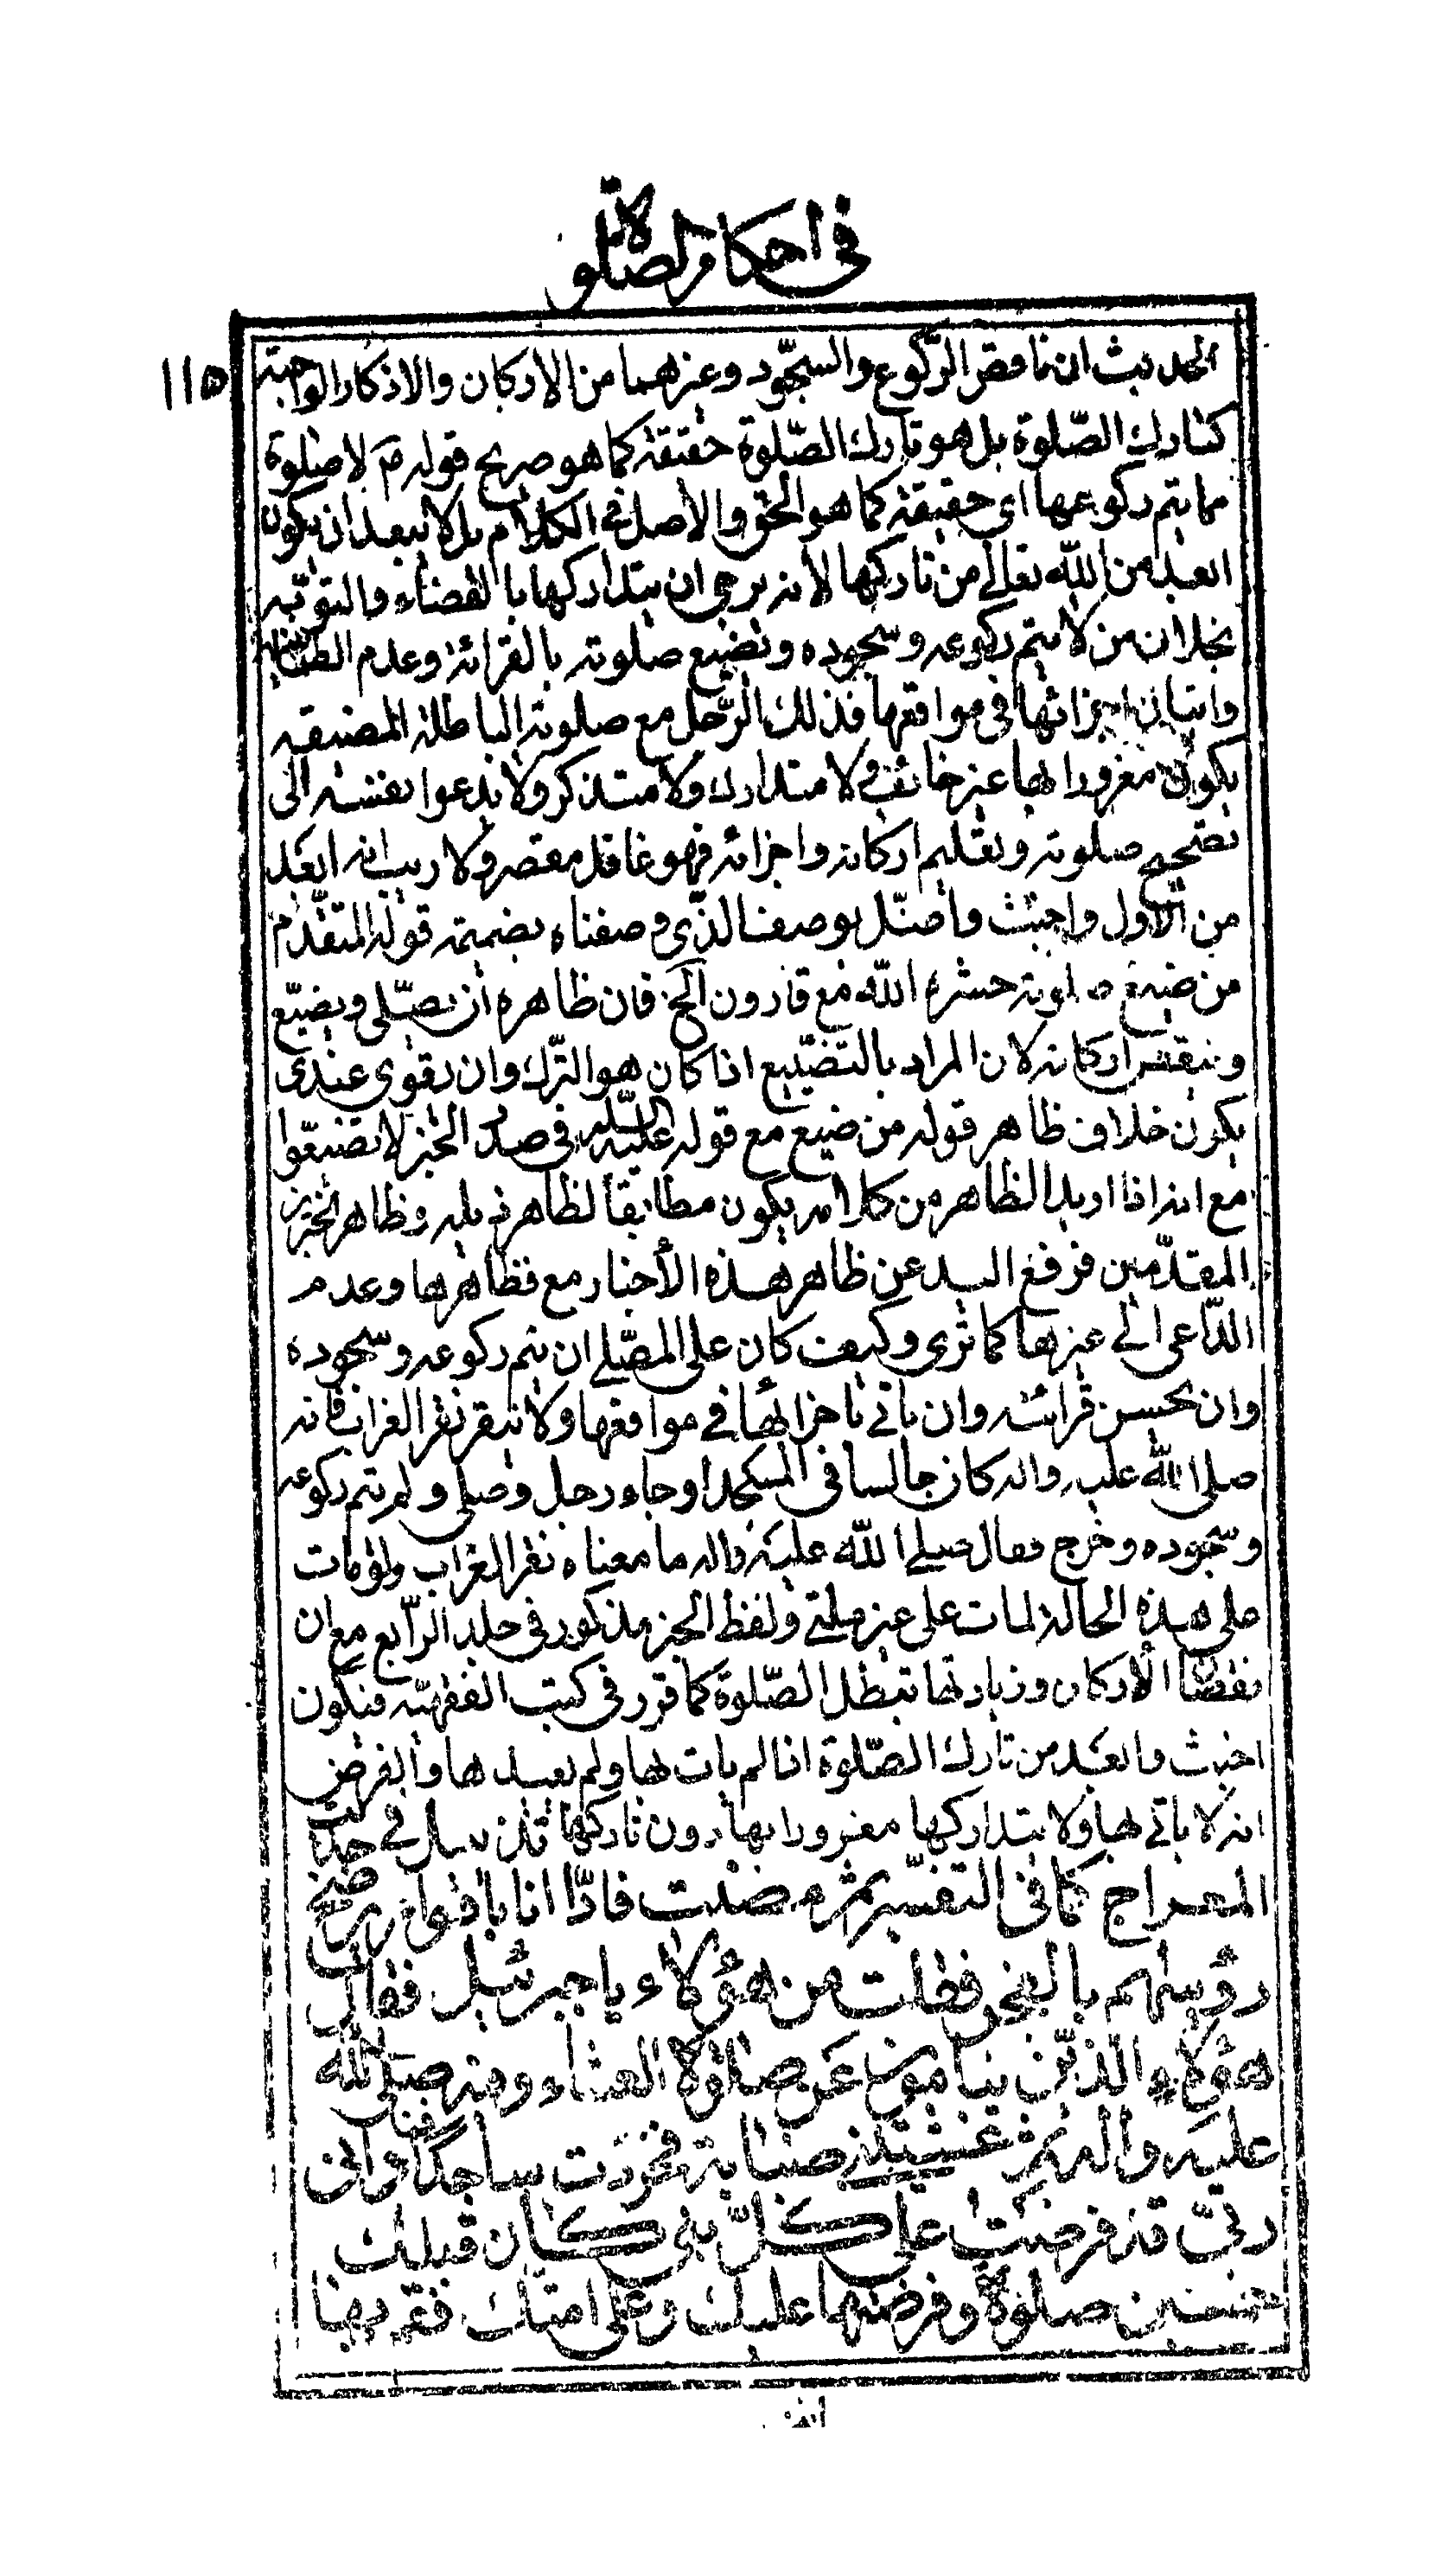 في احكام الصلوة
١١٥
الحديث ان ناقص الركوع والسجود وغيرهما من الاركان والاذكار الواجبة
كتارك الصلوة بل هو تارك الصلوة حقيقة كما هو صريح قوله م لا صلوة
مما يتم ركوعها اي حقيقة كما هو الحق والاصل في الكلام بل لا يبعد ان يكون
ابعد من الله تعالى من تاركها لانه يرجى ان يتداركها بالقضاء والتوبة
بخلاف من لا يتم ركوعه وسجوده وتضيع صلوته بالقرائة وعدم الطمانينة
واتيان اجزائها في مواقعها فذلك الرجل مع صلوته الباطلة المضيقه
يكون مغرورا بها غير خائف ولا متدارك ولا متذكر ولا يدعوا نفسه الى
تصحيح صلوته وتعليم اركانه واجزائه فهو غافل مقصر ولا ريب انه ابعد
من الاول واخبث واضل بوصف الذي وصفناه بضميمة قوله المتقدم
من ضيع صلوته حشره الله مع قارون الخ فان ظاهره ان يصلى ويضيع
وينقص اركانه لان المراد بالتضييع اذا كان هو الترك وان تقوى عندى
يكون خلاف ظاهر قوله من ضيع مع قوله عليه السلام في صدر الخبر لا تضيعوا
مع انه اذا اريد الظاهر من كلامه يكون مطابقا لظاهر ذيله وظاهر الخبرين
المقدمين فرفع اليد عن ظاهر هذه الأخبار مع تظاهرها وعدم
الداعى الى غيرها كما ترى وكيف كان على المصلي ان يتم ركوعه وسجوده
وان يحسن قرائته وان ياتي باجزائها في مواقعها ولا ينقر نقر الغراب فانه
صلى الله عليه واله كان جالسا في المسجد اوجاء رجل وصلى ولم يتم ركوعه
وسجوده وخرج فقال صلى الله عليه واله ما معناه نقر الغراب ولو مات
على هذه الحالة لمات على غير ملتي ولفظ الخبر مذكور في جلد الرابع مع ان
نقصان الأركان وزيادتها تبطل الصلوة كما قرر في كتب الفقهية فيكون
اخبث وابعد من تارك الصلوة اذا لم يات بها ولم يعيدها والفرض
انه لا ياتي بها ولا يتداركها مغرورا بها دون تاركها تذييل في حديث
المعراج كما في التفسير ثم مضيت فاذا انا باقوام يرضخ
رؤسهم بالصخر فقلت من هؤلاء يا جبرئيل فقال
هؤلاء الذين ينامون عن صلوة العشاء ومنه صلى الله
عليه واله ثم غشيتني صبابة فخررت ساجدا فناداني
ربي قد فرضت على كل نبي كان قبلك
خمسين صلوة وفرضتها عليك وعلى امتك فقم بها